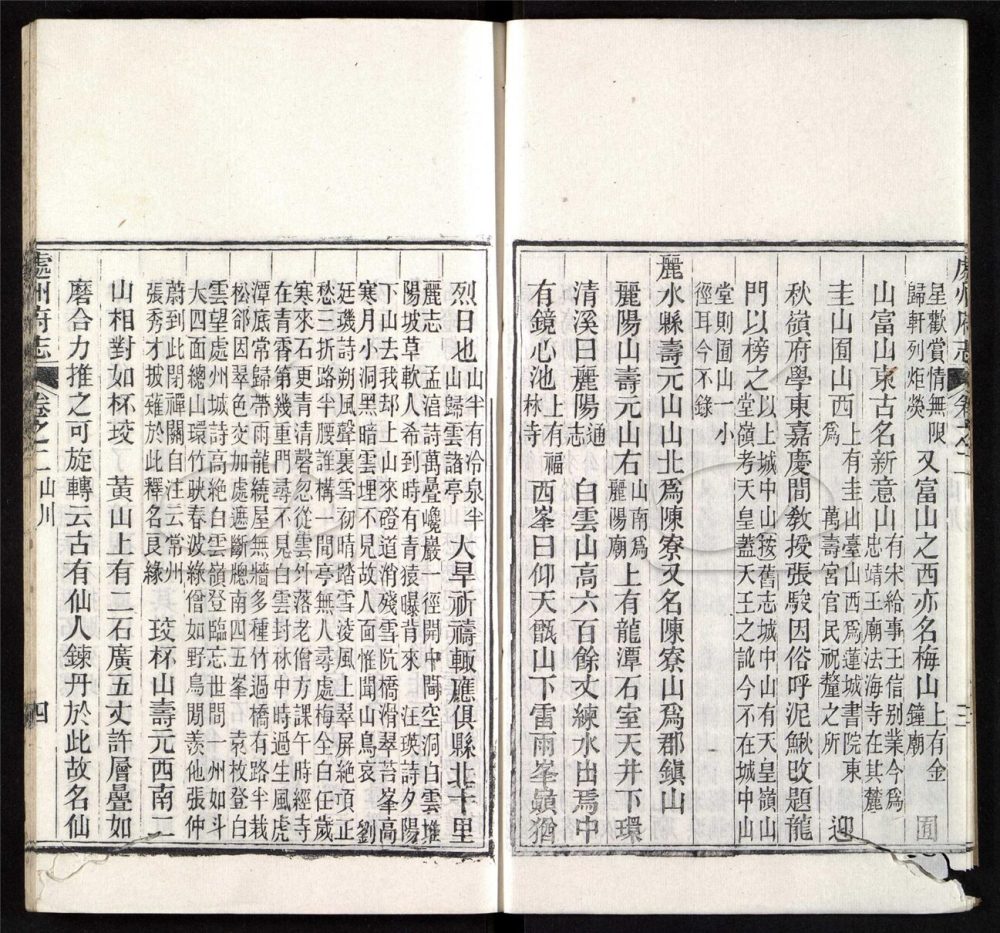 處州府志 卷之二 三
星歡賞情無限
歸軒列炬熒
又富山之西亦名梅山
上有金
鐘廟
囿
山富山東古名新意山
有宋給事王信別業今爲
忠靖王廟法海寺在其麓
圭山囿山西
上有圭山臺山西爲蓮城書院東
爲 萬壽宮官民祝釐之所
迎
秋嶺府學東嘉慶間敎授張駿因俗呼泥鰍改題龍
門以榜之
以上城中山按舊志城中山有天皇嶺山
堂嶺考天皇蓋天王之訛今不在城中山
堂則囿山一小
徑耳今不錄
麗水縣壽元山山北爲陳寮又名陳寮山爲郡鎭山
麗陽山壽元山右
山南爲
麗陽廟
上有龍潭石室天井下環
清溪曰麗陽
通
志
白雲山高六百餘丈練水出焉中
有鏡心池
上有福
林寺
西峯曰仰天甑山下雷雨峯巓猶
烈日也
山半有冷泉半
山歸雲諸亭
大旱祈禱輒應俱縣北十里
麗志 孟淯詩萬疊巉巖一徑開中間空洞白雲堆
陽坡草軟人希到時有青猿曝背來 汪瑛詩夕陽
下山去我却上山來磴道消殘雪阮橋滑翠苔峯高
寒月小洞黑暗雲埋不見故人面惟聞山鳥哀 劉
廷璣詩朔風聲裏雪初晴踏雪淩風上翠屏絶頂正
愁三折路半腰誰構一間亭無人尋處梅全白任歲
寒來石更青清磬忽從雲外落老僧方課午時經寺
在青霄第幾重門尋不見白雲封秋中時過生風虎
潭底常歸帶雨龍繞屋無牆多種竹過橋有路半栽
松郤因翠色交加處遮斷牕南四五峯 袁枚登白
雲望處州城詩高絶白雲嶺登臨忘世間一州如斗
大四面總山環竹映春波綠僧如野鳥閒羨他張仲
蔚到此閉禪關自注云常州
張秀才披薙於此釋名艮緣
珓杯山壽元西南二
山相對如杯珓 黃山上有二石廣五丈許層疊如
磨合力推之可旋轉云古有仙人鍊丹於此故名仙
處州府志 卷之二 山川 四